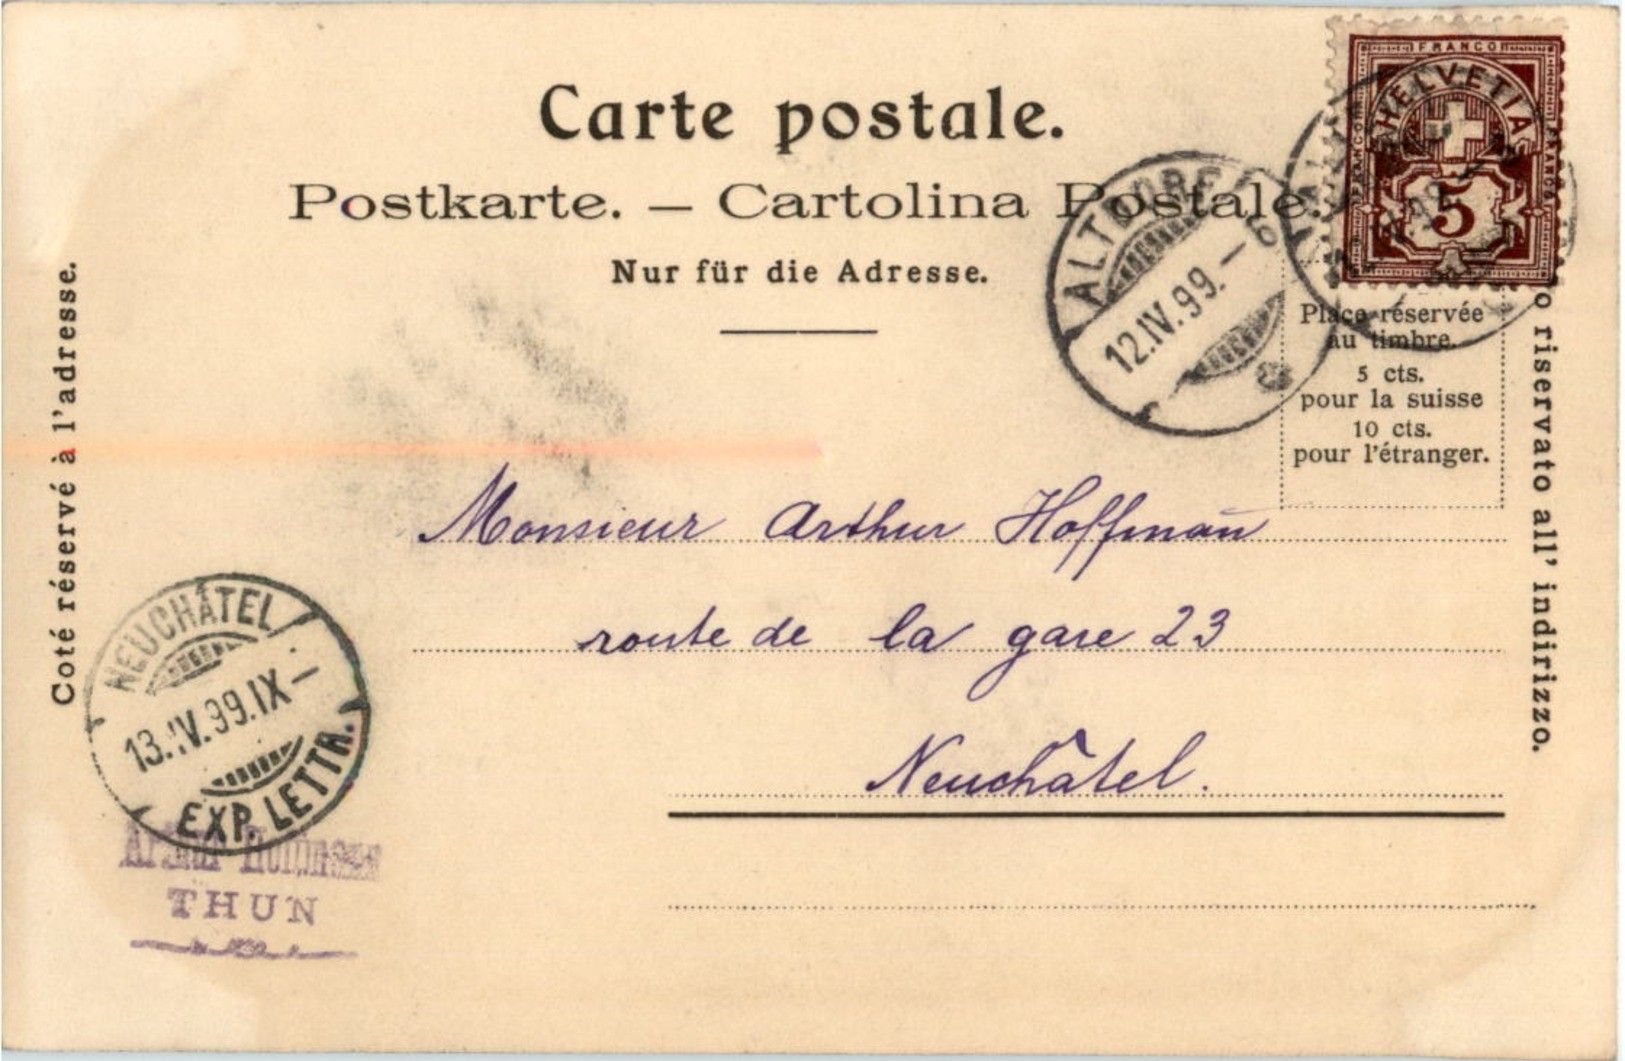 Carte postale.
Postkarte. — Cartolina Postale.
Nur für die Adresse.
FRANCO
FRANCO
FRANCO
HELVETIA
5
ALTDORF
12.IV.99.—
Place réservée
au timbre.
5 cts.
pour la suisse
10 cts.
pour l'étranger.
Coté réservé à l'adresse.
riservato all' indirizzo.
Monsieur Arthur Hoffmañ
route de la gare 23
Neuchâtel.
NEUCHÂTEL
13.IV.99.IX—
EXP. LETTR.
Arthur
THUN